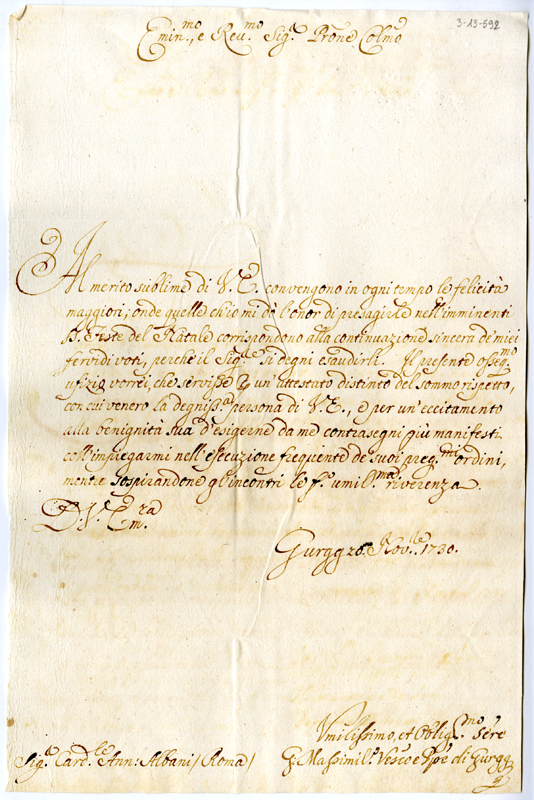 3-13-592
Emin.mo, e Reu.mo Sig.r Prōne Colmo
Al merito sublime di V.E. convengono in ogni tempo le felicità
maggiori; onde quelle ch'io mi dò l'onor di presagirle nell'imminenti
S. Feste del Natale corrispondono alla continuazione sincera de' miei
fervidi voti, perche il Sig.re si degni esaudirli. Il presente osseq.mo
ufizio vorrei, che servisse un'attestato distinto del sommo rispetto,
con cui venero la degniss.a persona di V.E., e per un'eccitamento
alla benignità sua d'esigerne da me contrasegni più manifesti
coll'impiegarmi nell'esecuzione frequente de' suoi preg.mi ordini,
mentre sospirandone gl'incontri le fò umil.ma riverenza.
D. V.ra Em.
Gurgg 20. Nov.bre 1730.
Vmilissimo, et Oblig.mo Sere
Sig.r Card.le Ann: Albani / Roma /
G. Massimil.o Vesco e Ppe di Gurgg